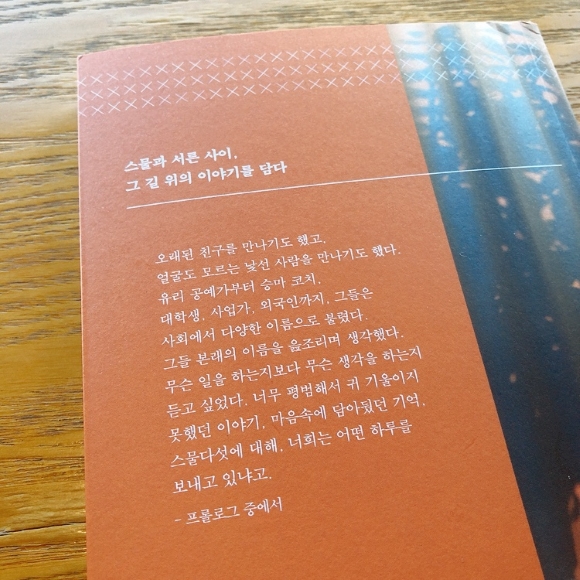 스물과 서른 사이,
그 길 위의 이야기를 담다
오래된 친구를 만나기도 했고,
얼굴도 모르는 낯선 사람을 만나기도 했다.
유리 공예가부터 승마 코치,
대학생, 사업가, 외국인까지, 그들은
사회에서 다양한 이름으로 불렸다.
그들 본래의 이름을 읊조리며 생각했다.
무슨 일을 하는지보다 무슨 생각을 하는지
듣고 싶었다. 너무 평범해서 귀 기울이지
못했던 이야기, 마음속에 담아뒀던 기억,
스물다섯에 대해, 너희는 어떤 하루를
보내고 있냐고.
- 프롤로그 중에서